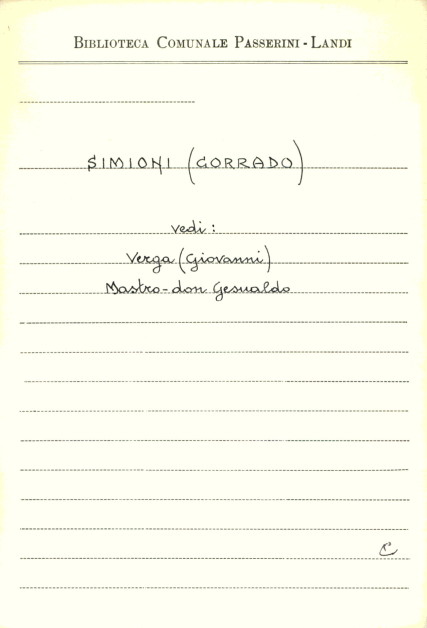 BIBLIOTECA COMUNALE PASSERINI - LANDI
SIMIONI (CORRADO)
vedi:
Verga (Giovanni)
Mastro-don Gesualdo
C